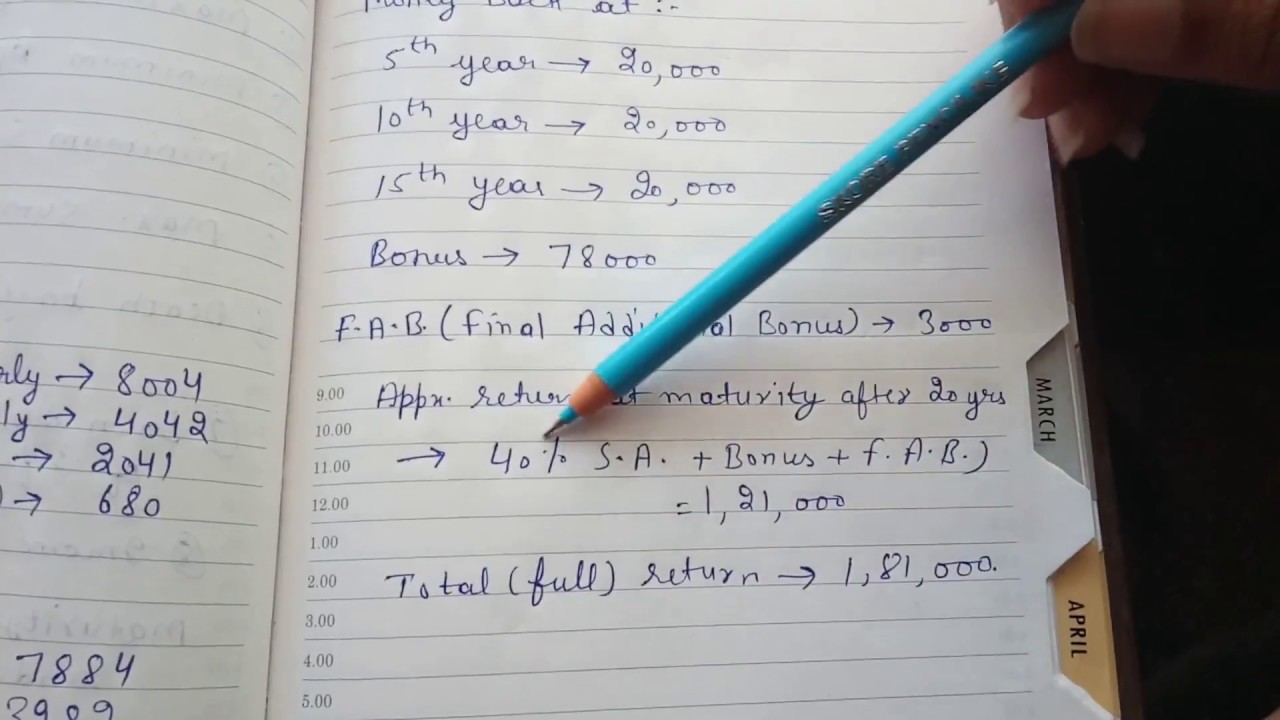 Money Back at :-
5th year → 20,000
10th year → 20,000
15th year → 20,000
Bonus → 78000
F.A.B. (Final Addi al Bonus) → 3000
Appx. return at maturity after 20 yrs
→ 40% S.A. + Bonus + F.A.B.)
= 1,21,000
Total (full) return → 1,81,000.
rly → 8004
ly → 4042
→ 2041
) → 680
7884
3909
9.00
10.00
11.00
12.00
1.00
2.00
3.00
4.00
5.00
MARCH
APRIL